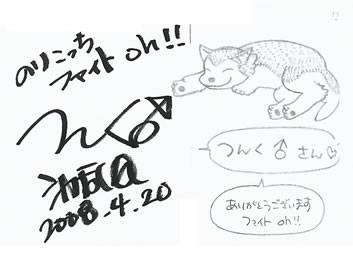 のりこっち
ファイト oh!!
つんく♂
2008.4.20
つんく♂ さん♡
ありがとうございます
ファイト oh!!